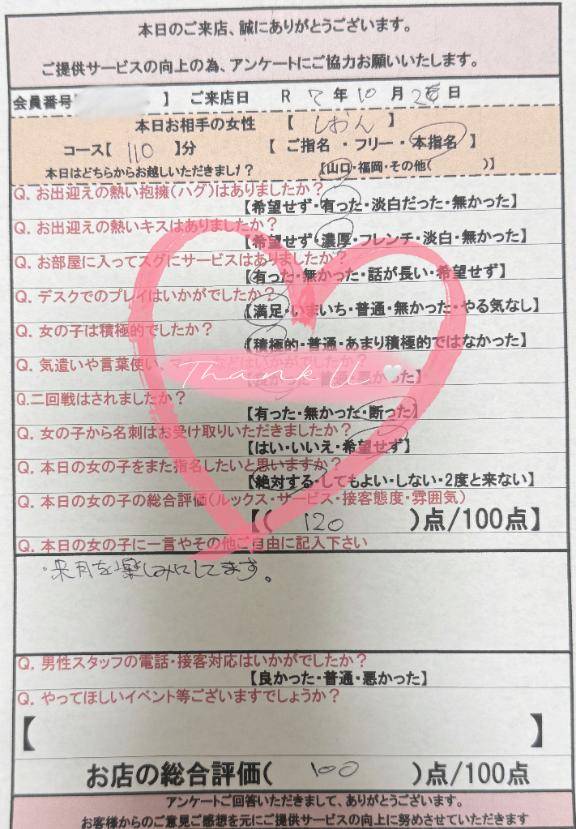 本日のご来店、誠にありがとうございます。
ご提供サービスの向上の為、アンケートにご協力お願いいたします。
会員番号 】 ご来店日 R 7 年 10 月 25 日
本日お相手の女性 【 しおん 】
コース【 110 】分 【 ご指名・フリー・本指名】
本日はどちらからお越しいただきました? 【山口・福岡・その他( )】
Q. お出迎えの熱い抱擁(ハグ)はありましたか?
【希望せず・有った・淡白だった・無かった】
Q. お出迎えの熱いキスはありましたか?
【希望せず・濃厚・フレンチ・淡白・無かった】
Q. お部屋に入ってスグにサービスはありましたか?
【有った・無かった・話が長い・希望せず】
Q. デスクでのプレイはいかがでしたか?
【満足・いまいち・普通・無かった・やる気なし】
Q. 女の子は積極的でしたか?
【積極的・普通・あまり積極的ではなかった】
Q. 気遣いや言葉使い、
Thank U
Q.二回戦はされましたか?
【有った・無かった・断った】
Q. 女の子から名刺はお受け取りいただきましたか?
【はい・いいえ・希望せず】
Q. 本日の女の子をまた指名したいと思いますか?
【絶対する・してもよい・しない・2度と来ない】
Q. 本日の女の子の総合評価(ルックス・サービス・接客態度・雰囲気)
【( 120 )点/100点】
Q. 本日の女の子に一言やその他ご自由に記入下さい
・来月を楽しみにしてます。
Q. 男性スタッフの電話・接客対応はいかがでしたか?
【良かった・普通・悪かった】
Q. やってほしいイベント等ございますでしょうか?
【 】
お店の総合評価( 100 )点/100点
アンケートご回答いただきまして、ありがとうございます。
お客様からのご意見ご感想を元にご提供サービスの向上に努めさせていただきます